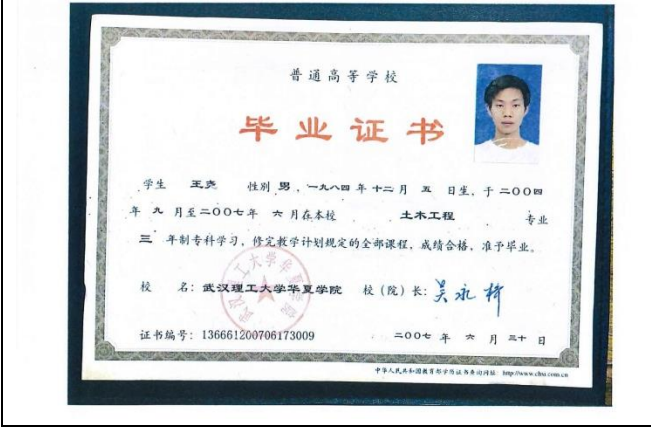 普通高等学校
毕业证书
学生 王尧 性别 男，一九八四 年 十二 月 五 日生，于 二00四
年 九 月至二00七年 六 月在本校 土木工程 专业
三 年制专科学习，修完教学计划规定的全部课程，成绩合格，准予毕业。
校 名：武汉理工大学华夏学院 校（院）长：
证书编号：136661200706173009 二00七 年 六 月 三十 日
中华人民共和国教育部学历证书查询网址：http://www.chsi.com.cn